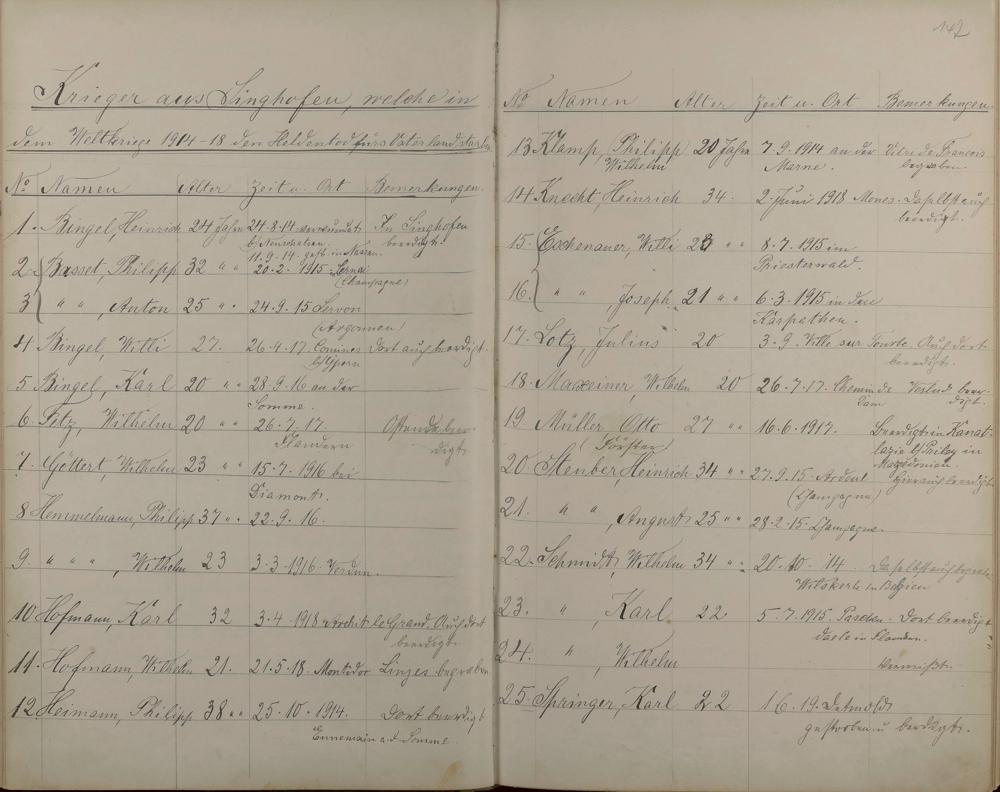 Krieger aus Singhofen, welche in
dem Weltkriege 1914-18 den Heldentod fürs Vaterland starb.
No Namen Alter Zeit u. Ort Bemerkungen.
1. Bingel, Heinrich 24 Jahre 24.8.14 verwundet In Singhofen
b/ Neufchateau. beerdigt.
11.9.14. gest. in Nassau.
2 Basset, Philipp 32 " " 20-2-1915
(Champagne)
3 " " , Anton 25 " " 24.9.15 Servon
(Argonnen)
4 Bingel, Willi 27. 26.4.17. Comines Dort auch beerdigt.
b/ Ypern
5 Bingel, Karl 20 " " 28.9.16 an der
Somme.
6. Wilhelm 20 " " 26.7.17. Ostende beer-
Flandern digt
7. Göttert, Wilhelm 23 " " 15.7.1916 bei
8 Hemmelmann, Philipp 37 " " 22.9.16.
9. " " " , Wilhelm 23 3.3.1916. Verdun.
10 Hofmann, Karl 32 3.4.1918 le Grand. Auch dort
beerdigt.
11. Hofmann, Wilhelm 21. 21.5.18. Montidor begraben
12 Heimann, Philipp 38 " " 25.10.1914. Dort beerdigt
Ennemain a.d. Somme.
142
No Namen Alter Zeit u. Ort Bemerkungen.
13 Klamp, Philipp 20 Jahre 7.9.1914 an der Vitre de Francois
Wilhelm Marne. begraben.
14 Knecht, Heinrich 34. 2 Juni 1918 Daselbst auch
beerdigt.
15. Eschenauer, Willi 23 " " 8.7.1915 im
Priesterwald.
16. " " , Joseph 21 " " 6.3.1915 in den
Karpathen.
17. Lotz, Julius 20 3.9. Ville sur Tourbe. Auch dort
beerdigt.
18. Maxeiner, Wilhelm 20 26.7.17. Chemin de beer-
Dam digt.
19. Müller Otto 27 " " 16.6.1917. Beerdigt in Kanat-
(Förster) larzie b/ Prilep in
Mazedonien.
20. Steuber, Heinrich 34 " " 27.9.15. Hierauch beerdigt
(Champagne)
21. " " , August 25 " " 28.2.15. Champagne.
22. Schmidt, Wilhelm 34 " " 20.10.14 Daselbst auch
in Belgien
23. " , Karl 22 5.7.1915. Dort beerdigt
in Flandern.
24. " , Wilhelm
Vermißt.
25. Springer, Karl 22 1 6.19. Detmold
gestorben u beerdigt.